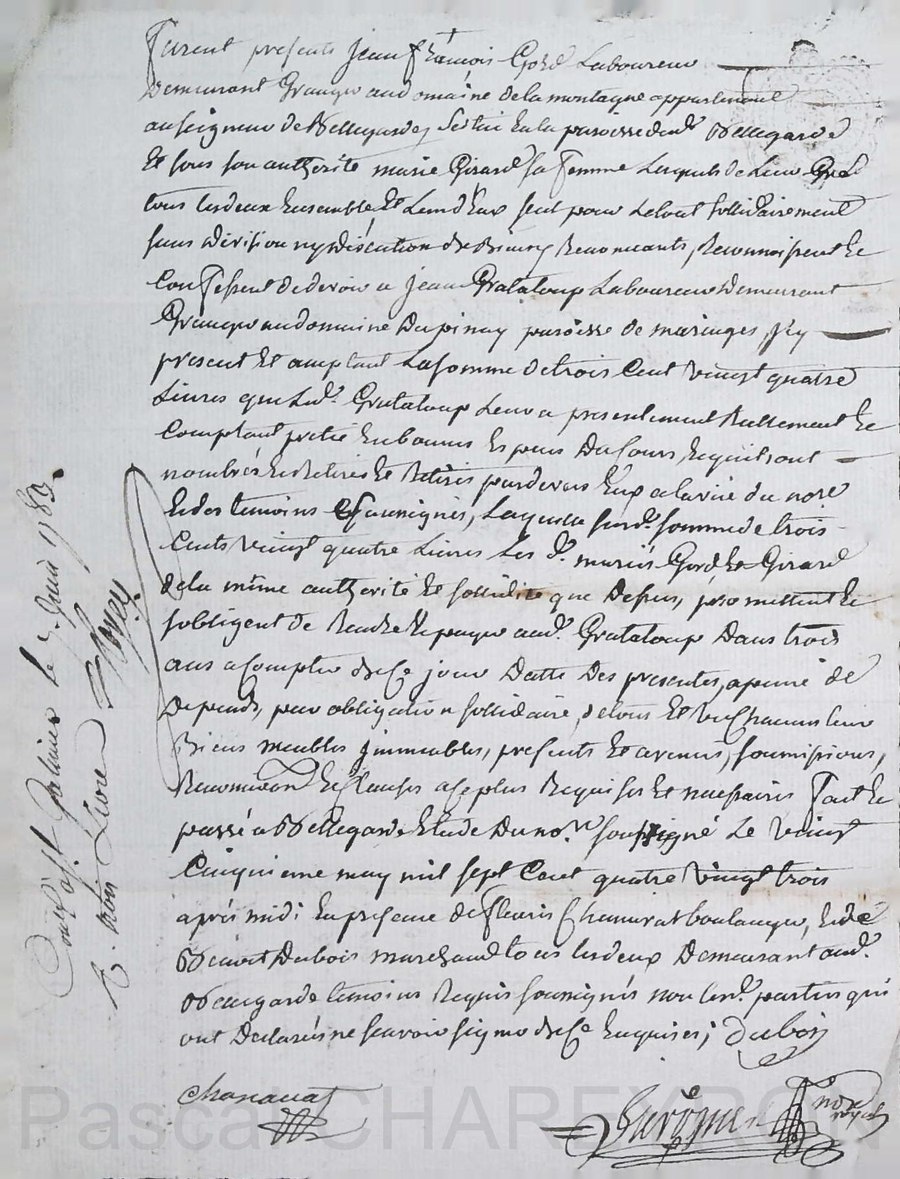 Furent presents jean françois Gord Laboureur
Demeurant Granger au domaine de la montagne appartenant
au seigneur de Bellegarde, scitué en la paroisse dud. Bellegarde
Et sous son authorité marie Girard sa femme Lesquels de Leur Gré
tous lesdeux Ensemble Et Lun d'Eux seul pour Letout sollidairement
sans division ny discution de Biens, Renoncants, Reconnoissent Et
Confessent de devoir a jean Grataloup Laboureur Demeurant
Granger au domaine Dupinay paroisse de maringes, icy
present Et acceptant La somme de trois Cent vingt quatre
Livres que Led. Grataloup Leur a presentement Réellement Et
Comptant preté En bonnes Especes Du Cours, Lequi ont
nombrés Et Retirés pardevers Eux a la vüe du nore
Et des temoins soussignés, Laquelle susd. somme de trois
Cents vingt quatre Livres Les d. mariés Gord Et Girard
de la même authorité Et sollidité que Dessus, promettent Et
sobligent de Rendre Et payer aud. Grataloup Dans trois
ans a Compter de Ce jour Datte Des presentes, apeine de
Depends, par obligation sollidaire, de tous Et Un Chacuns Leur
Biens meubles immeubles, presents Et avenir, soumissions,
Renonciaons Et Clauses a Ce plus Requises Et necessaires Fait Et
passé a Bellegarde Etude Du nore soussigné Le vingt
Cinquieme may mil sept Cent quatre vingt trois
aprés midi En presence de fleuris Chanavat boulanger, Et de
Benoit Dubois marchand tous lesdeux Demeurant aud.
Bellegarde temoins Requis soussignés non Lesd. parties qui
ont Declarés ne scavoir signer de Ce Enquises; Dubois
Chanavat
nore royal
Conlé à St Galmier Le 7 juin 1783.
R. trois Livres
Pascal CHAREYRON